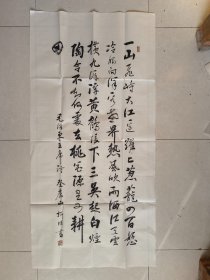 一山飛峙大江邊躍上葱蘢四百旋
冷眼向洋看世界熱風吹雨洒江天雲
横九派浮黄鶴浪下三吴起白煙
陶令不知何處去桃花源里可耕
田
毛泽东主席诗登庐山